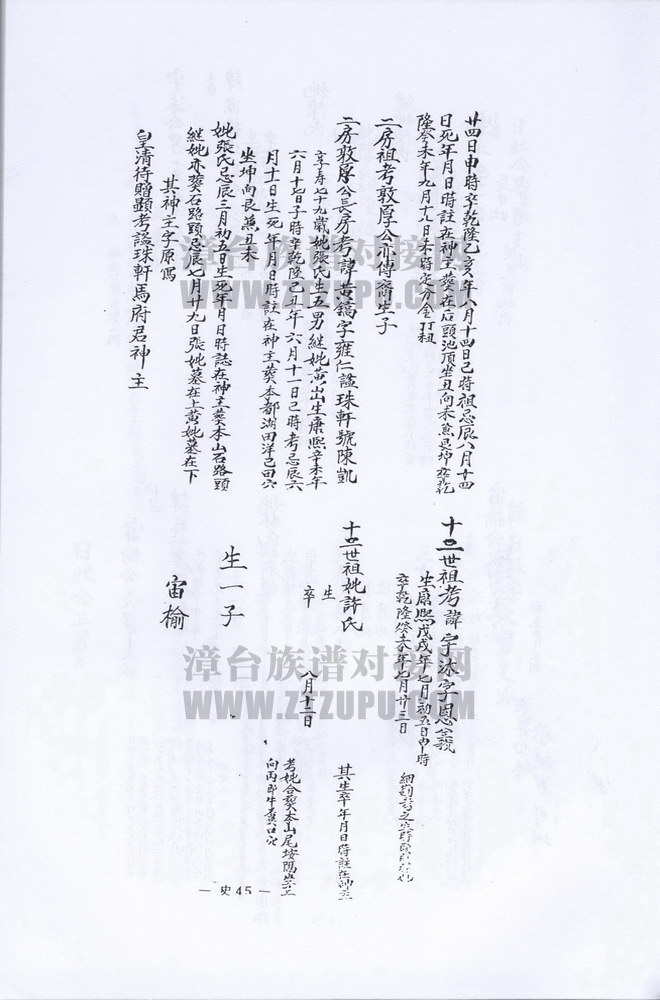 廿四日申時卒乾隆乙亥年八月十四日己時祖忌辰八月十四
日死年月日時註在神主葬在后頭池頂坐丑向未兼艮坤卒乾
隆癸未年九月十八日未時定分金
二房祖考敦厚公亦傳衍生子
二房敦厚公長房考諱黄鎬字雍仁諡珠軒號陳凱
享寿七十九歲妣張氏生五男継妣黄出生康熙辛未年
六月十七日子時卒乾隆己丑年六月十一日己時考忌辰六
月十一日生死年月日時註在神主葬本都湖田洋己田穴
坐坤向艮兼丑未
妣張氏忌辰三月初五日生死年月日時誌在神主葬本山石路頭
継妣亦葬石路頭忌辰七月廿九日張妣墓在上黄妣墓在下
其神主字原寫
皇清待贈顯考諡珠軒馬府君神主
十二世祖考諱宇沐字恩
生康熙戊戌年七月初五日申時
卒乾隆癸年七月廿三日
十二世祖妣許氏
生
卒
八月十二日
其生卒年月日時註在神主
考妣合葬本山尾
向丙即牛糞口穴
生一子
宙榆
漳台族谱对接网
WWW.ZTZUPU.COM
漳台族谱对接网
WWW.ZTZUPU.COM
— 史45 —